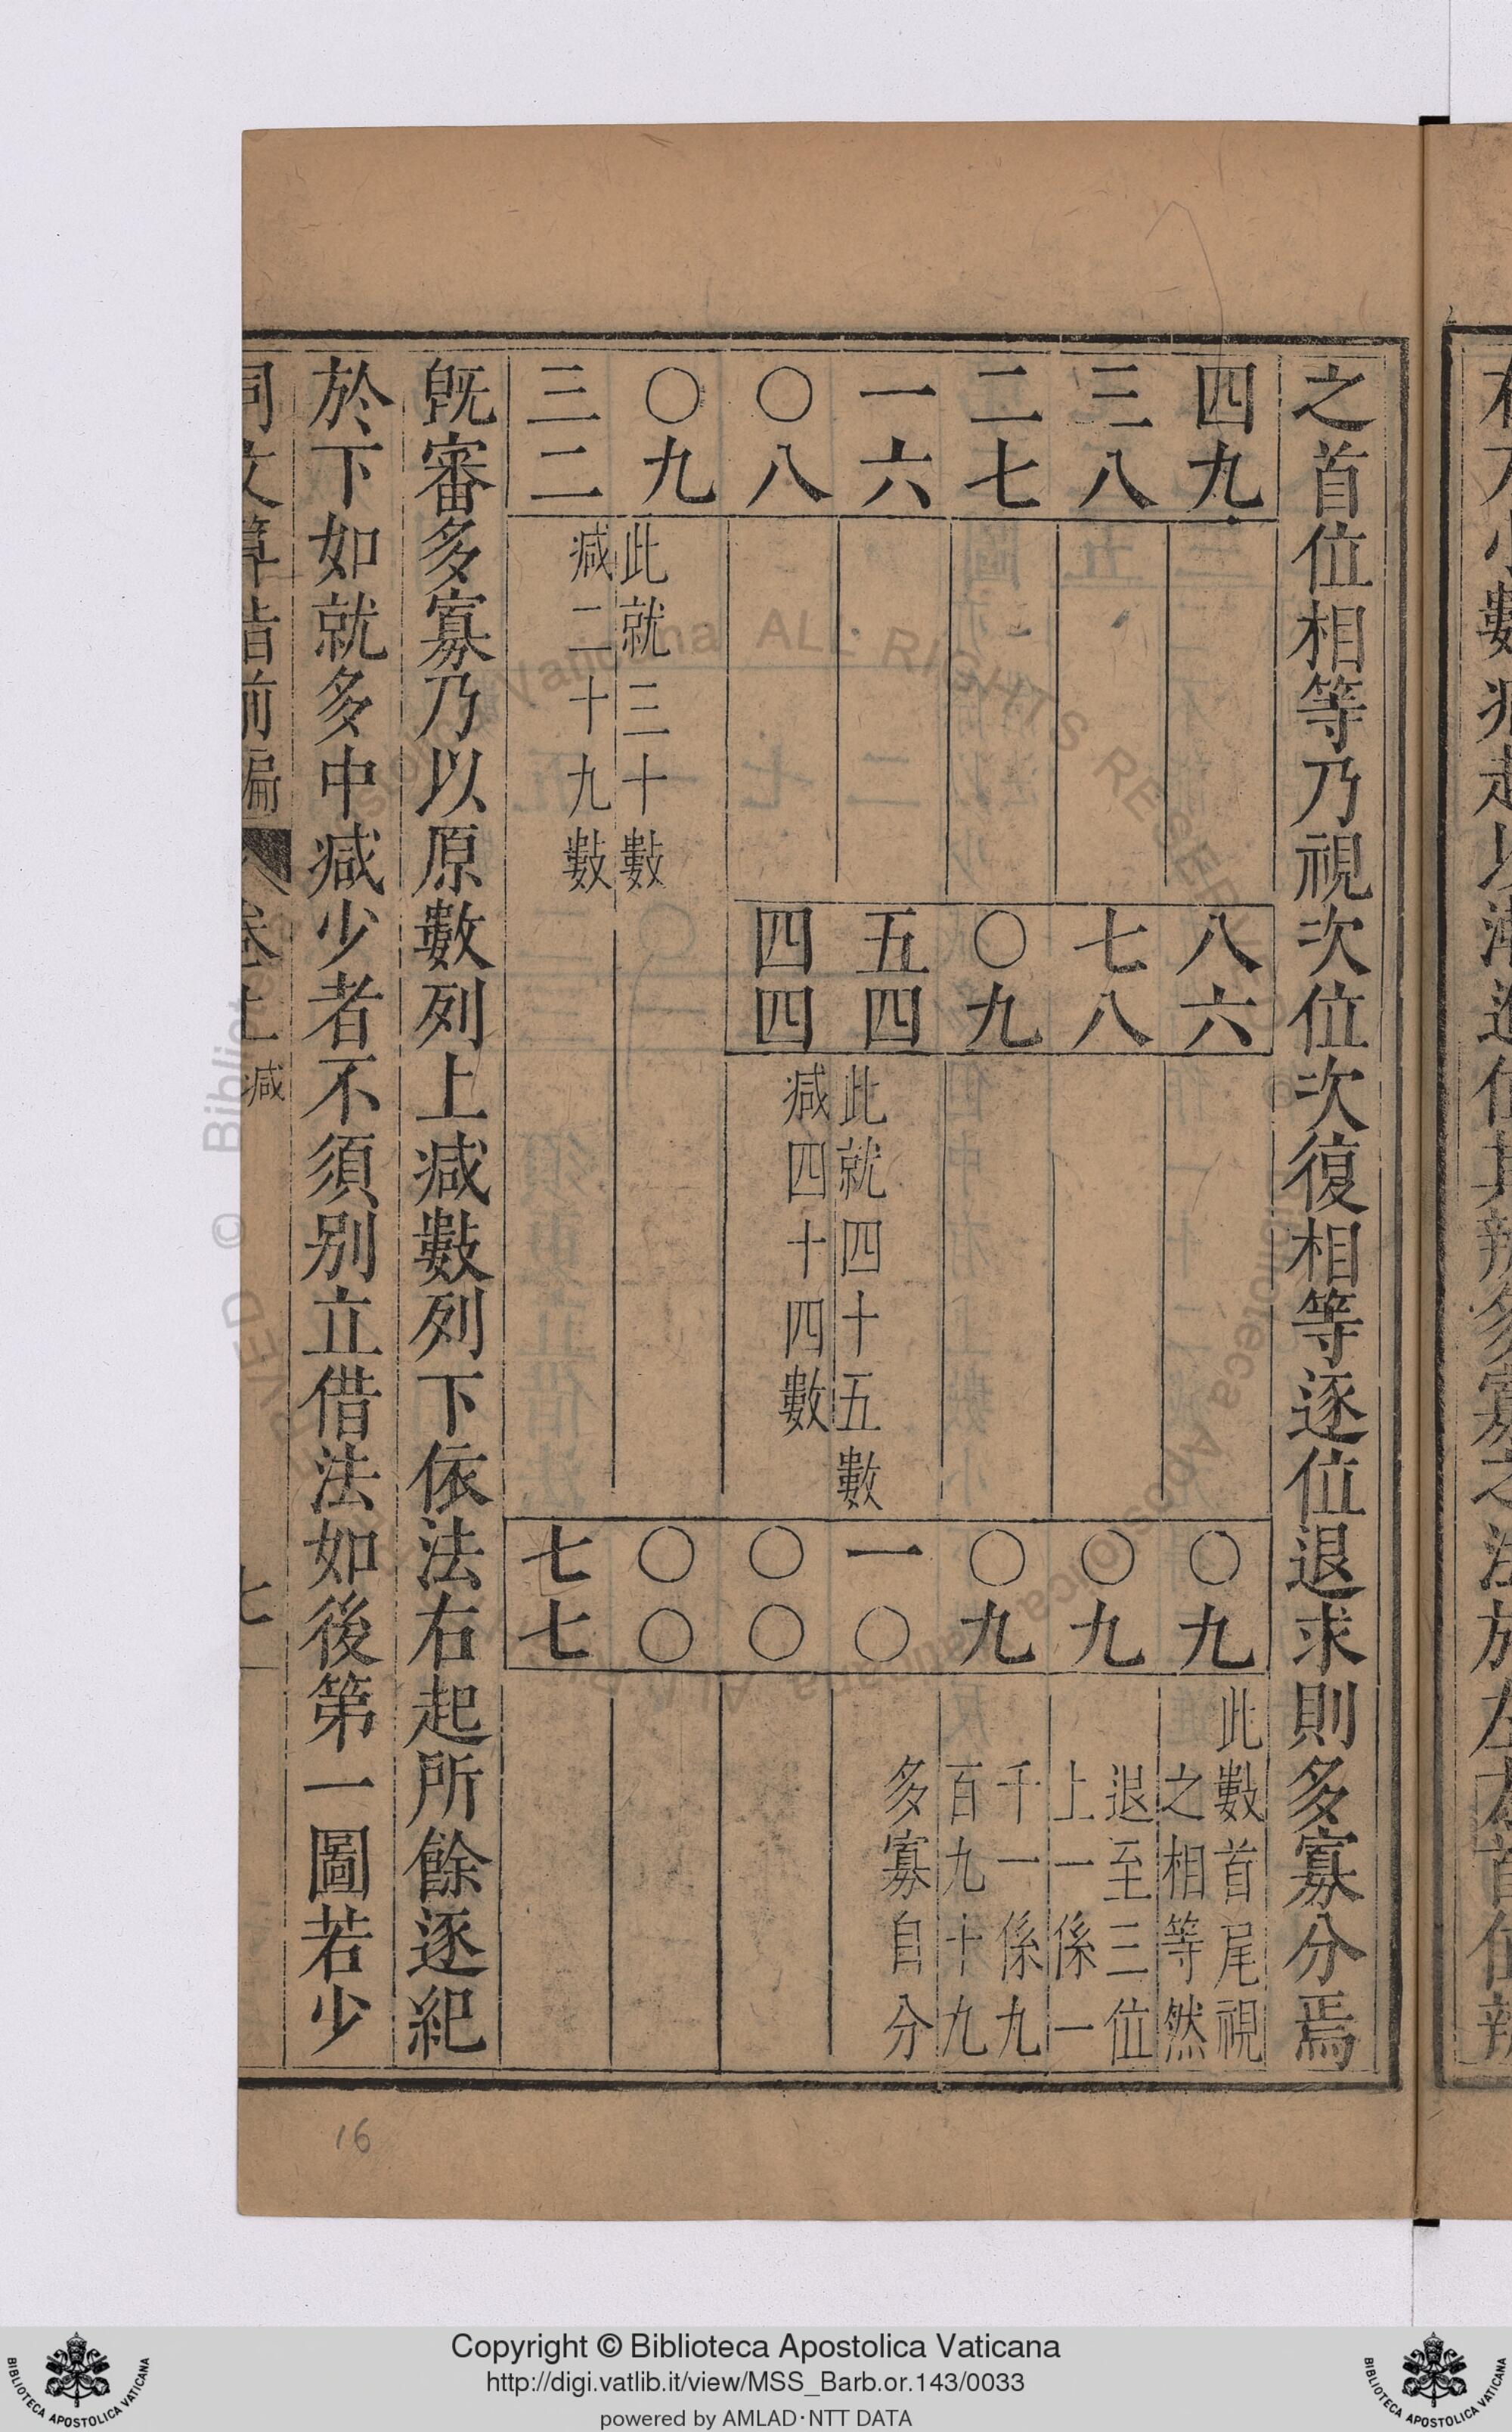 之首位相等乃視次位次復相等逐位退求則多寡分焉
四三二一〇〇三
九八七六八九二
此就三十數
減二十九數
八七〇五四
六八九四四
此就四十五數
減四十四數
〇〇〇一〇〇七
九九九〇〇〇七
此數首尾視
之相等然
退至三位
上一係一
千一係九
百九十九
多寡自分
既審多寡乃以原數列上減數列下依法右起所餘逐紀
於下如就多中減少者不須别立借法如後第一圖若少
減
七
16
Copyright © Biblioteca Apostolica Vaticana
http://digi.vatlib.it/view/MSS_Barb.or.143/0033
powered by AMLAD·NTT DATA
BIBLIOTECA APOSTOLICA VATICANA
BIBLIOTECA APOSTOLICA VATICANA